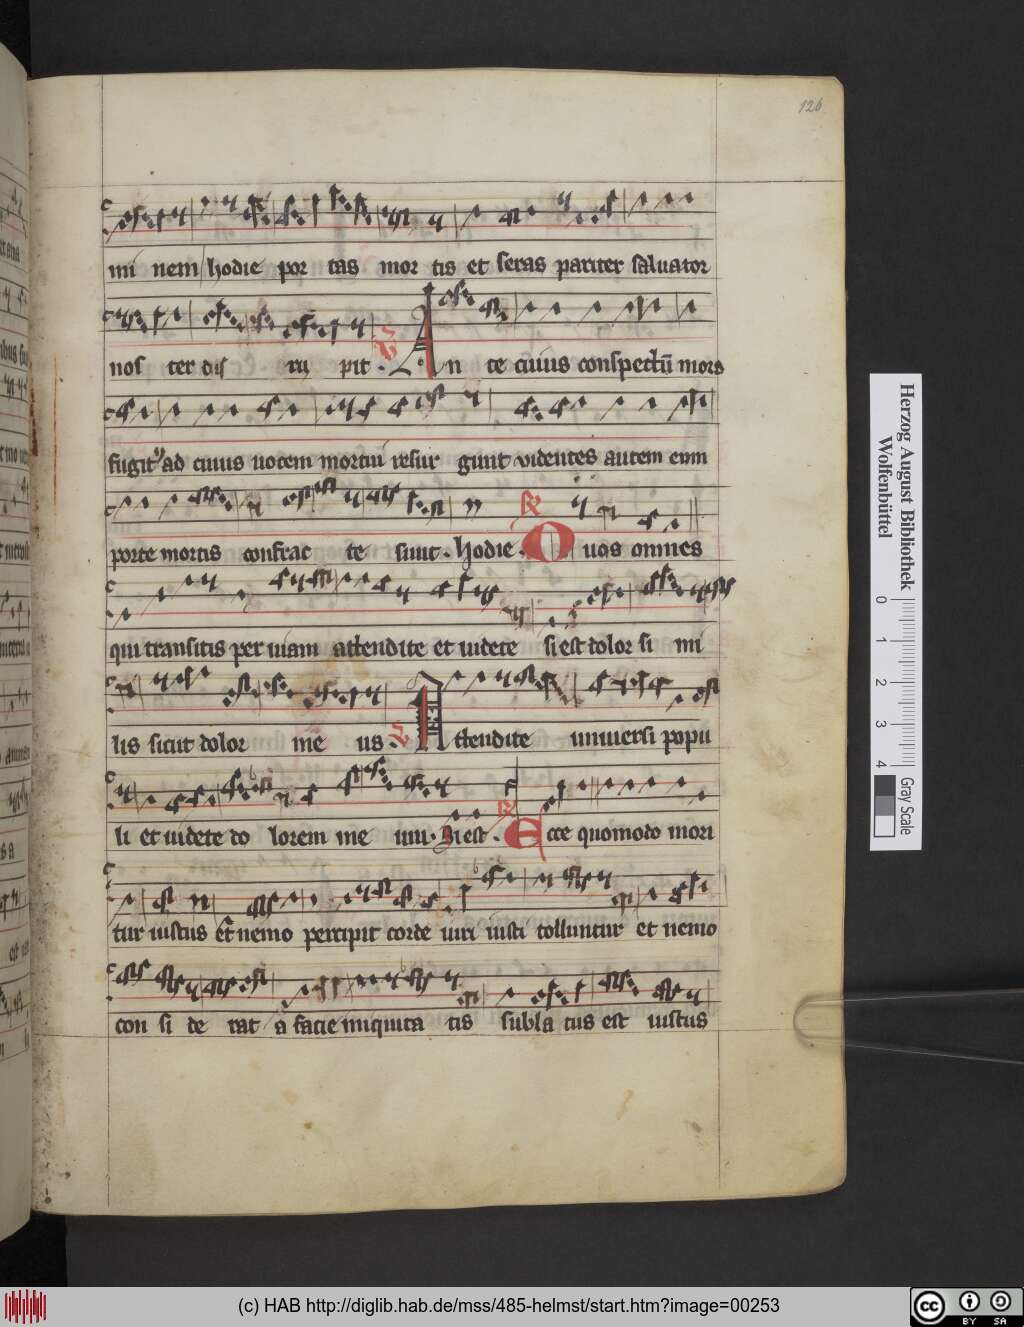 126
mi nem hodie por tas mor tis et seras pariter saluator
nos ter dis ru pit . V An te cuius conspectū mors
fugit ad cuius uocem mortui resur gunt videntes autem eum
porte mortis confrac te sunt . hodie . R O uos omnes
qui transitis per uiam attendite et uidete si est dolor si mi
lis sicut dolor me us . V Attendite uniuersi popu
li et uidete do lorem me um . Si est . R Ecce quomodo mori
tur iustus et nemo percipit corde uiri iusti tolluntur et nemo
con si de rat a facie iniquita tis subla tus est iustus
Herzog August Bibliothek
Wolfenbüttel
0 1 2 3 4
Gray Scale
(c) HAB http://diglib.hab.de/mss/485-helmst/start.htm?image=00253
cc BY SA